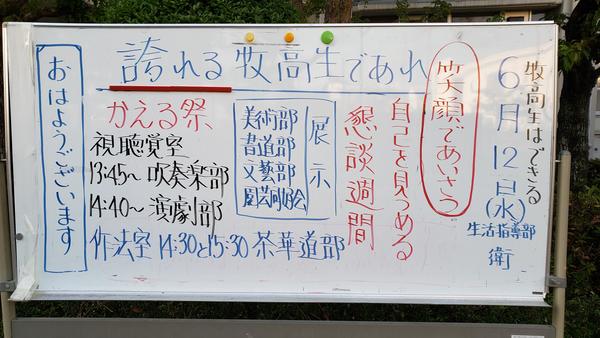 誇れる牧高生であれ
牧高生はできる
6月12日(水)
生活指導部
衛
笑顔であいさつ
自己を見つめる
懇談週間
展示
美術部
書道部
文藝部
園芸同好会
かえる祭
視聴覚室
13:45~吹奏楽部
14:40~演劇部
作法室 14:30と15:30 茶華道部
おはようございます